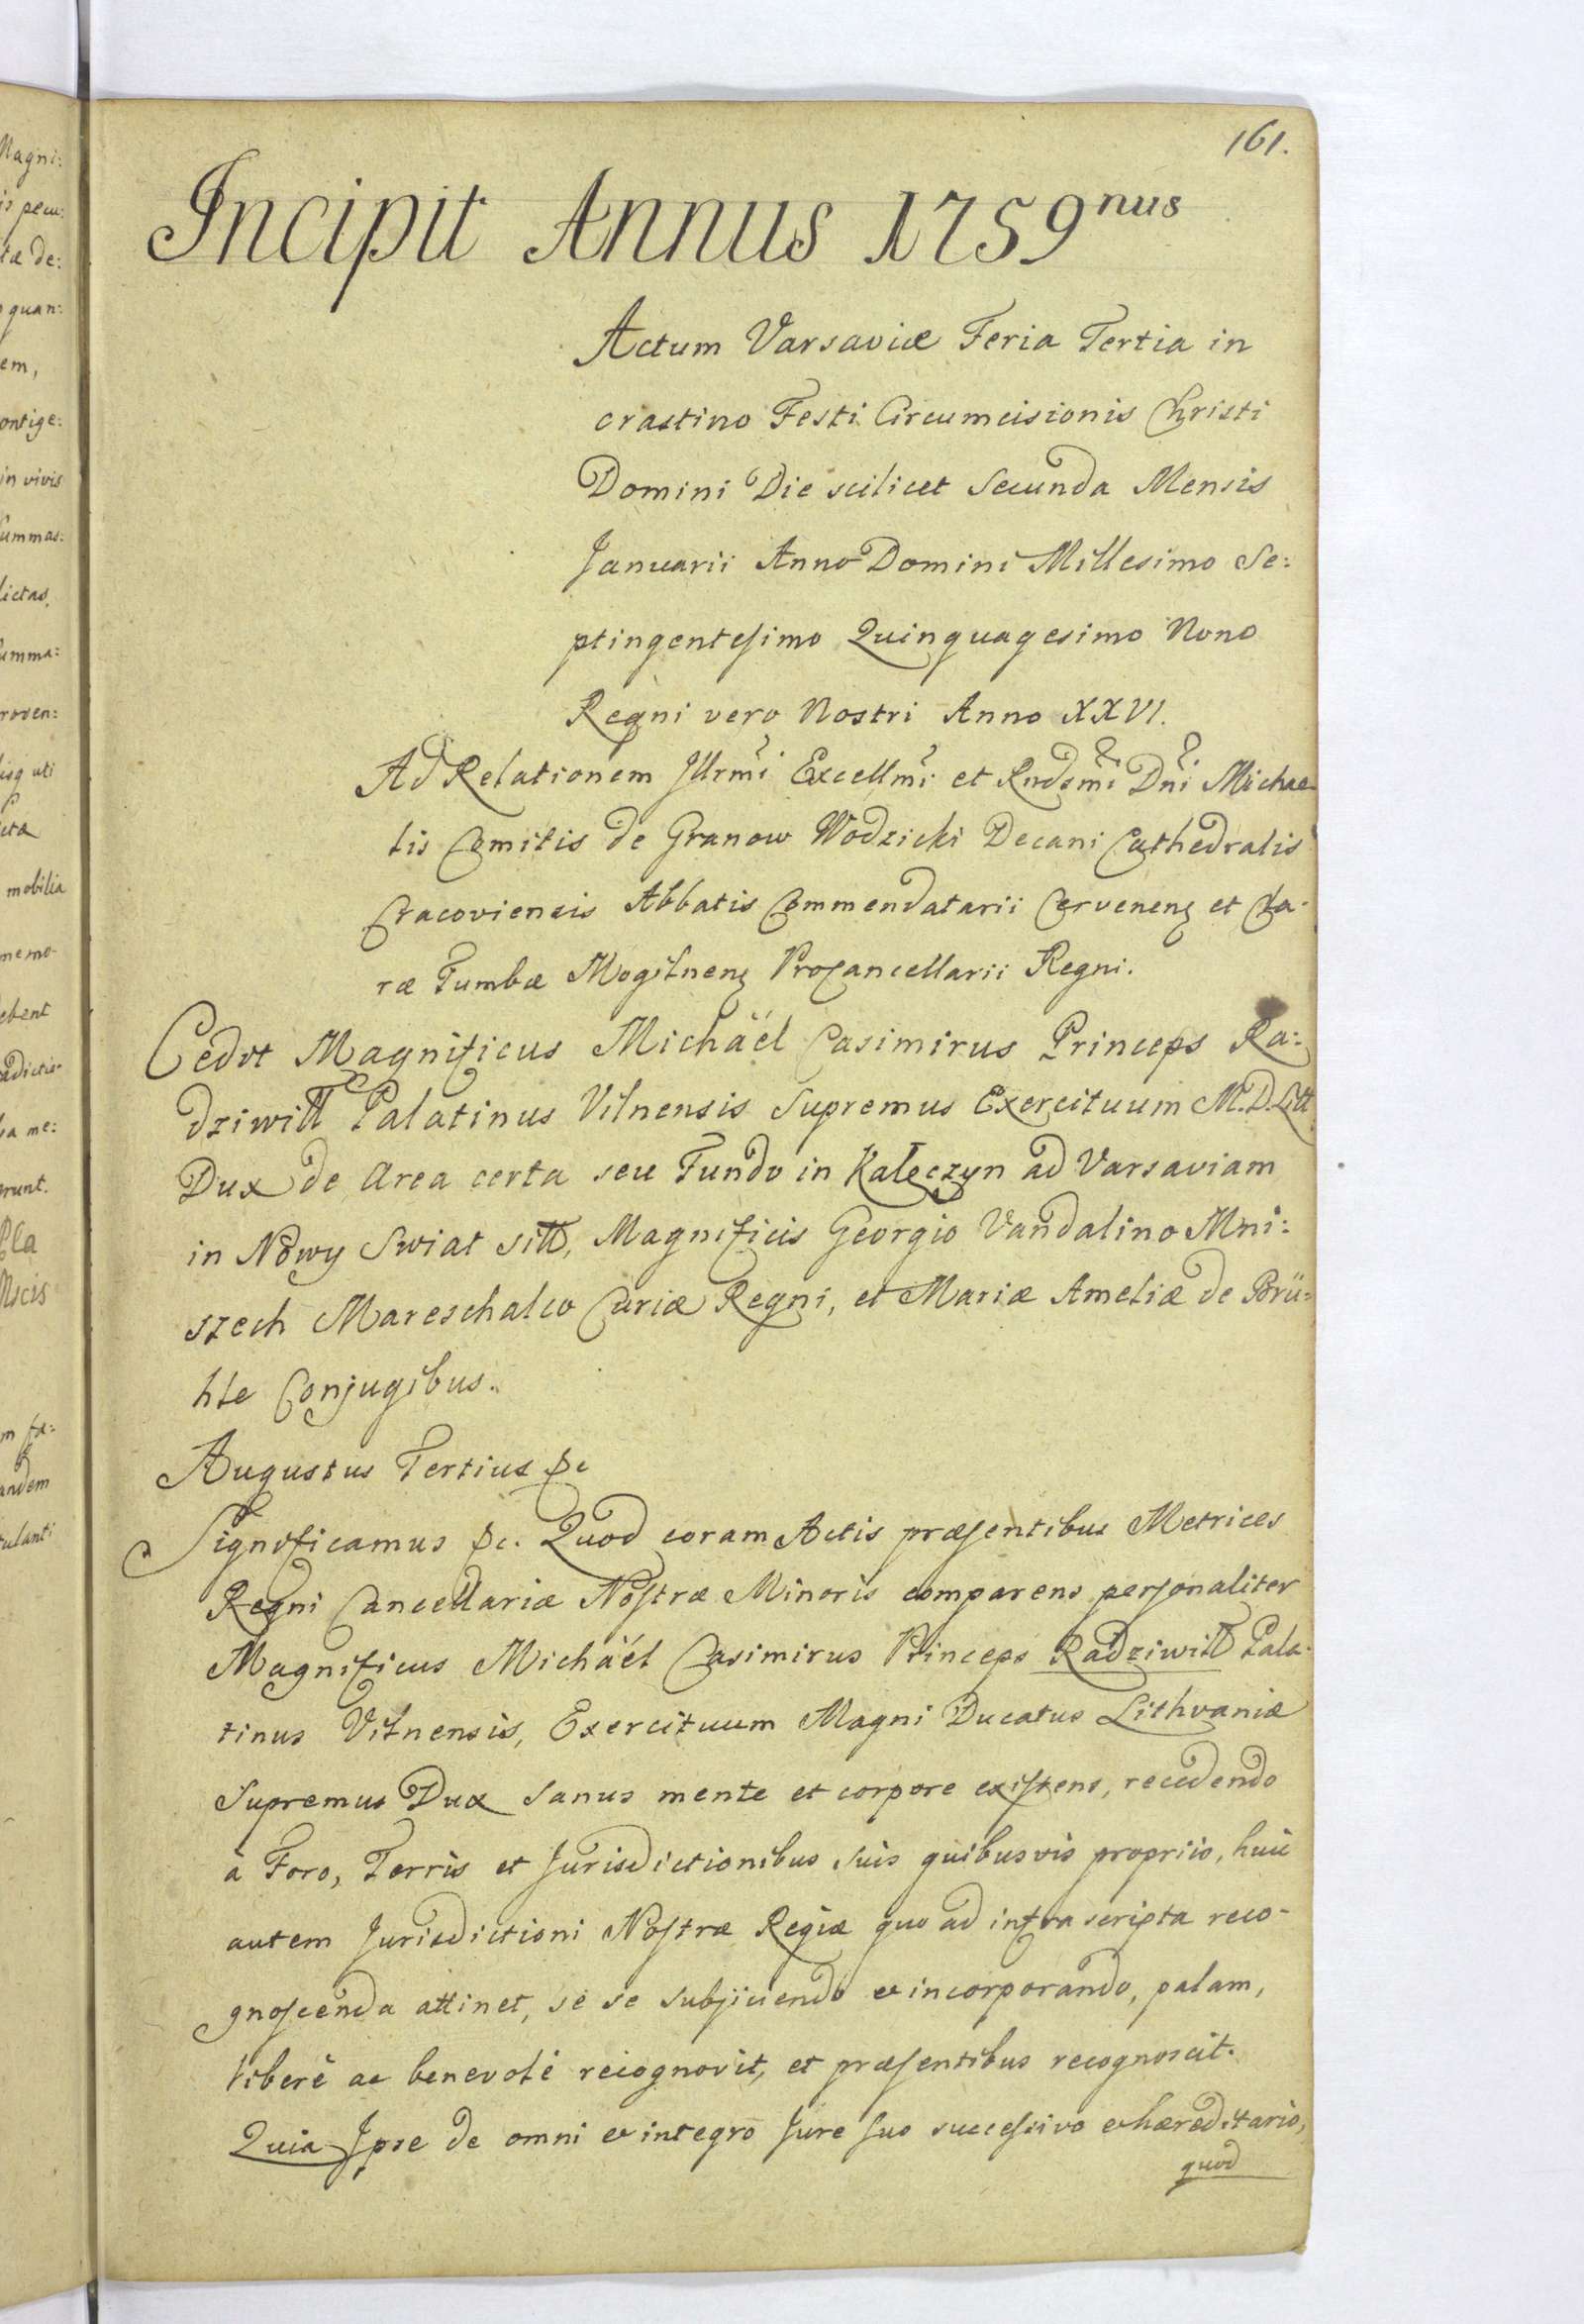 161.
Incipit Annus 1759nus
Actum Varsaviæ Feria Tertia in
crastino Festi Circumcisionis Christi
Domini Die scilicet Secunda Mensis
Januarii Anno Domini Millesimo Se:
ptingentesimo Quinquagesimo Nono
Regni vero Nostri Anno XXVI.
Ad Relationem Illrmi Excellmi et Rndsmi Dni Michae
lis Comitis de Granow Wodzicki Decani Cathedralis
Cracoviensis Abbatis Commendatarii Cervenens et Cla-
ræ Tumbæ Mogilnens Procancellarii Regni.
Cedit Magnificus Michäél Casimirus Princeps Ra:
dziwiłł Palatinus Vilnensis Supremus Exercituum M.D.Litt
Dux de Area certa seu Fundo in Kałęczyn ad Varsaviam
in Nowy Swiat sitt, Magnificis Georgio Vandalino Mni:
szech Mareschalco Curiæ Regni, et Mariæ Ameliæ de Brü:
hle Conjugibus.
Augustus Tertius &c
Significamus &c. Quod coram Actis præsentibus Metrices
Regni Cancellariæ Nostræ Minoris comparens personaliter
Magnificus Michäél Casimirus Princeps Radziwiłł Pala-
tinus Vilnensis, Exercituum Magni Ducatus Lithvaniæ
Supremus Dux Sanus mente et corpore existens, recedendo
à Foro, Terris et Jurisdictionibus suis quibusvis propriis, huic
autem Jurisdictioni Nostræ Regiæ quo ad infra scripta reco-
gnoscenda attinet, se se subjiciendo et incorporando, palam,
liberè ac benevolè recognovit, et præsentibus recognoscit.
Quia Ipse de omni et integro Jure suo successivo et hæreditario,
quod
Magni:
is pecu:
tæ de:
quan:
em,
ontige:
in vivis
Summas:
dictas,
umma:
roven:
uti
mobilia
memo-
ebent
me:
runt.
andem
tulanti